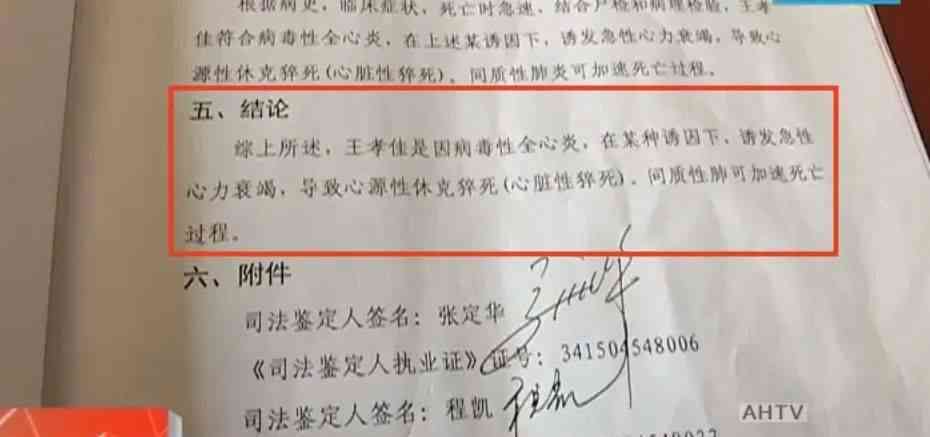 根据病史，临床症状，死亡时急速，结合尸检和病理检验，王孝
佳符合病毒性全心炎，在上述某诱因下，诱发急性心力衰竭，导致心
源性休克猝死(心脏性猝死)。间质性肺炎可加速死亡过程。
五、结论
综上所述，王孝佳是因病毒性全心炎，在某种诱因下，诱发急性
心力衰竭，导致心源性休克猝死(心脏性猝死)。间质性肺可加速死亡
过程。
六、附件
司法鉴定人签名：张定华
《司法鉴定人执业证》证号：341504548006
司法鉴定人签名：程凯 程凯
AHTV